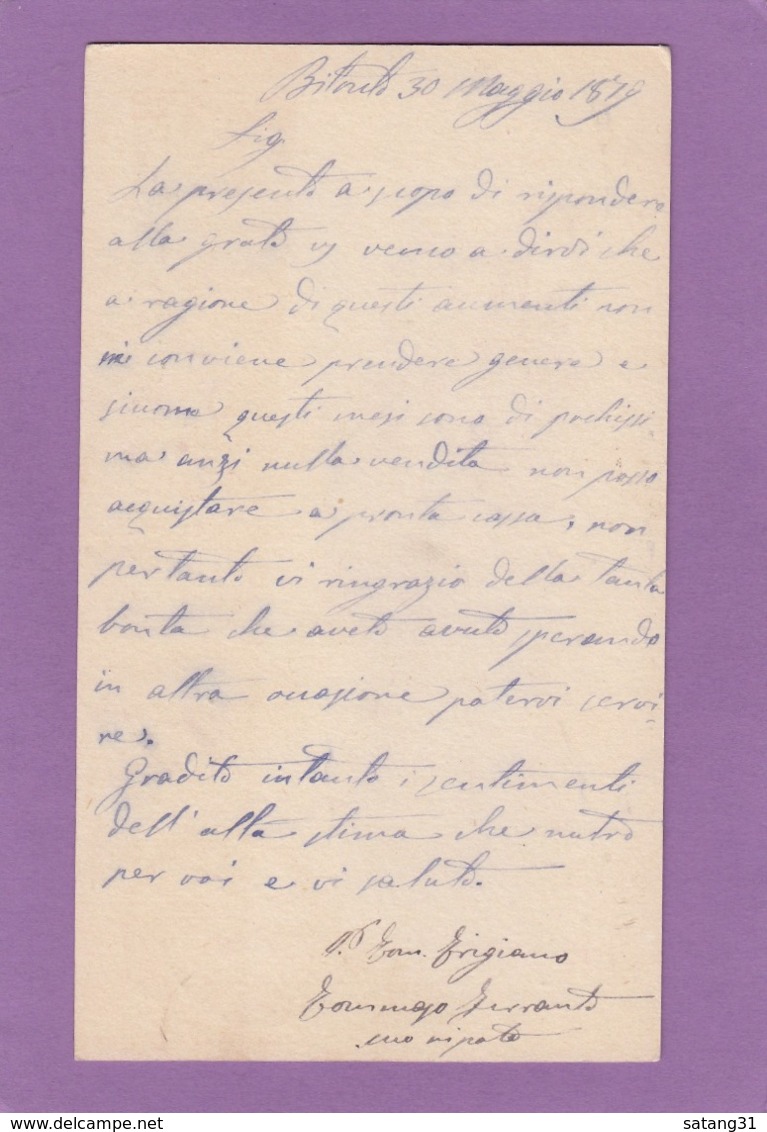 Bitonto 30 Maggio 1879
Sig.
La presente a scopo di rispondere
alla grata vs vengo a dirvi che
a ragione di questi aumenti non
mi conviene prendere genere e
siccome questi mesi sono di pochissi
ma anzi nulla vendita non posso
acquistare a pronta cassa, non
pertanto vi ringrazio della tanta
bonta che avete avuto sperando
in altra occasione potervi servi-
re.
Gradite intanto i sentimenti
dell'alta stima che nutro
per voi e vi saluto.
Pe Tom. Frigiano
Tommaso Ferrante
suo nipote
satang31